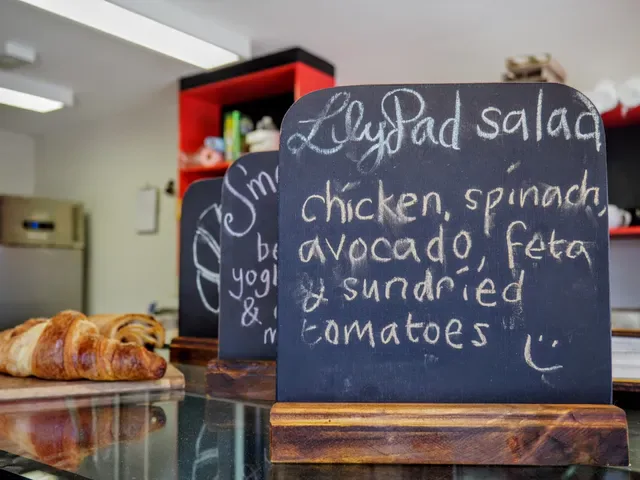 LilyPad salad
chicken, spinach,
avocado, feta
& sundried
tomatoes
yog
&